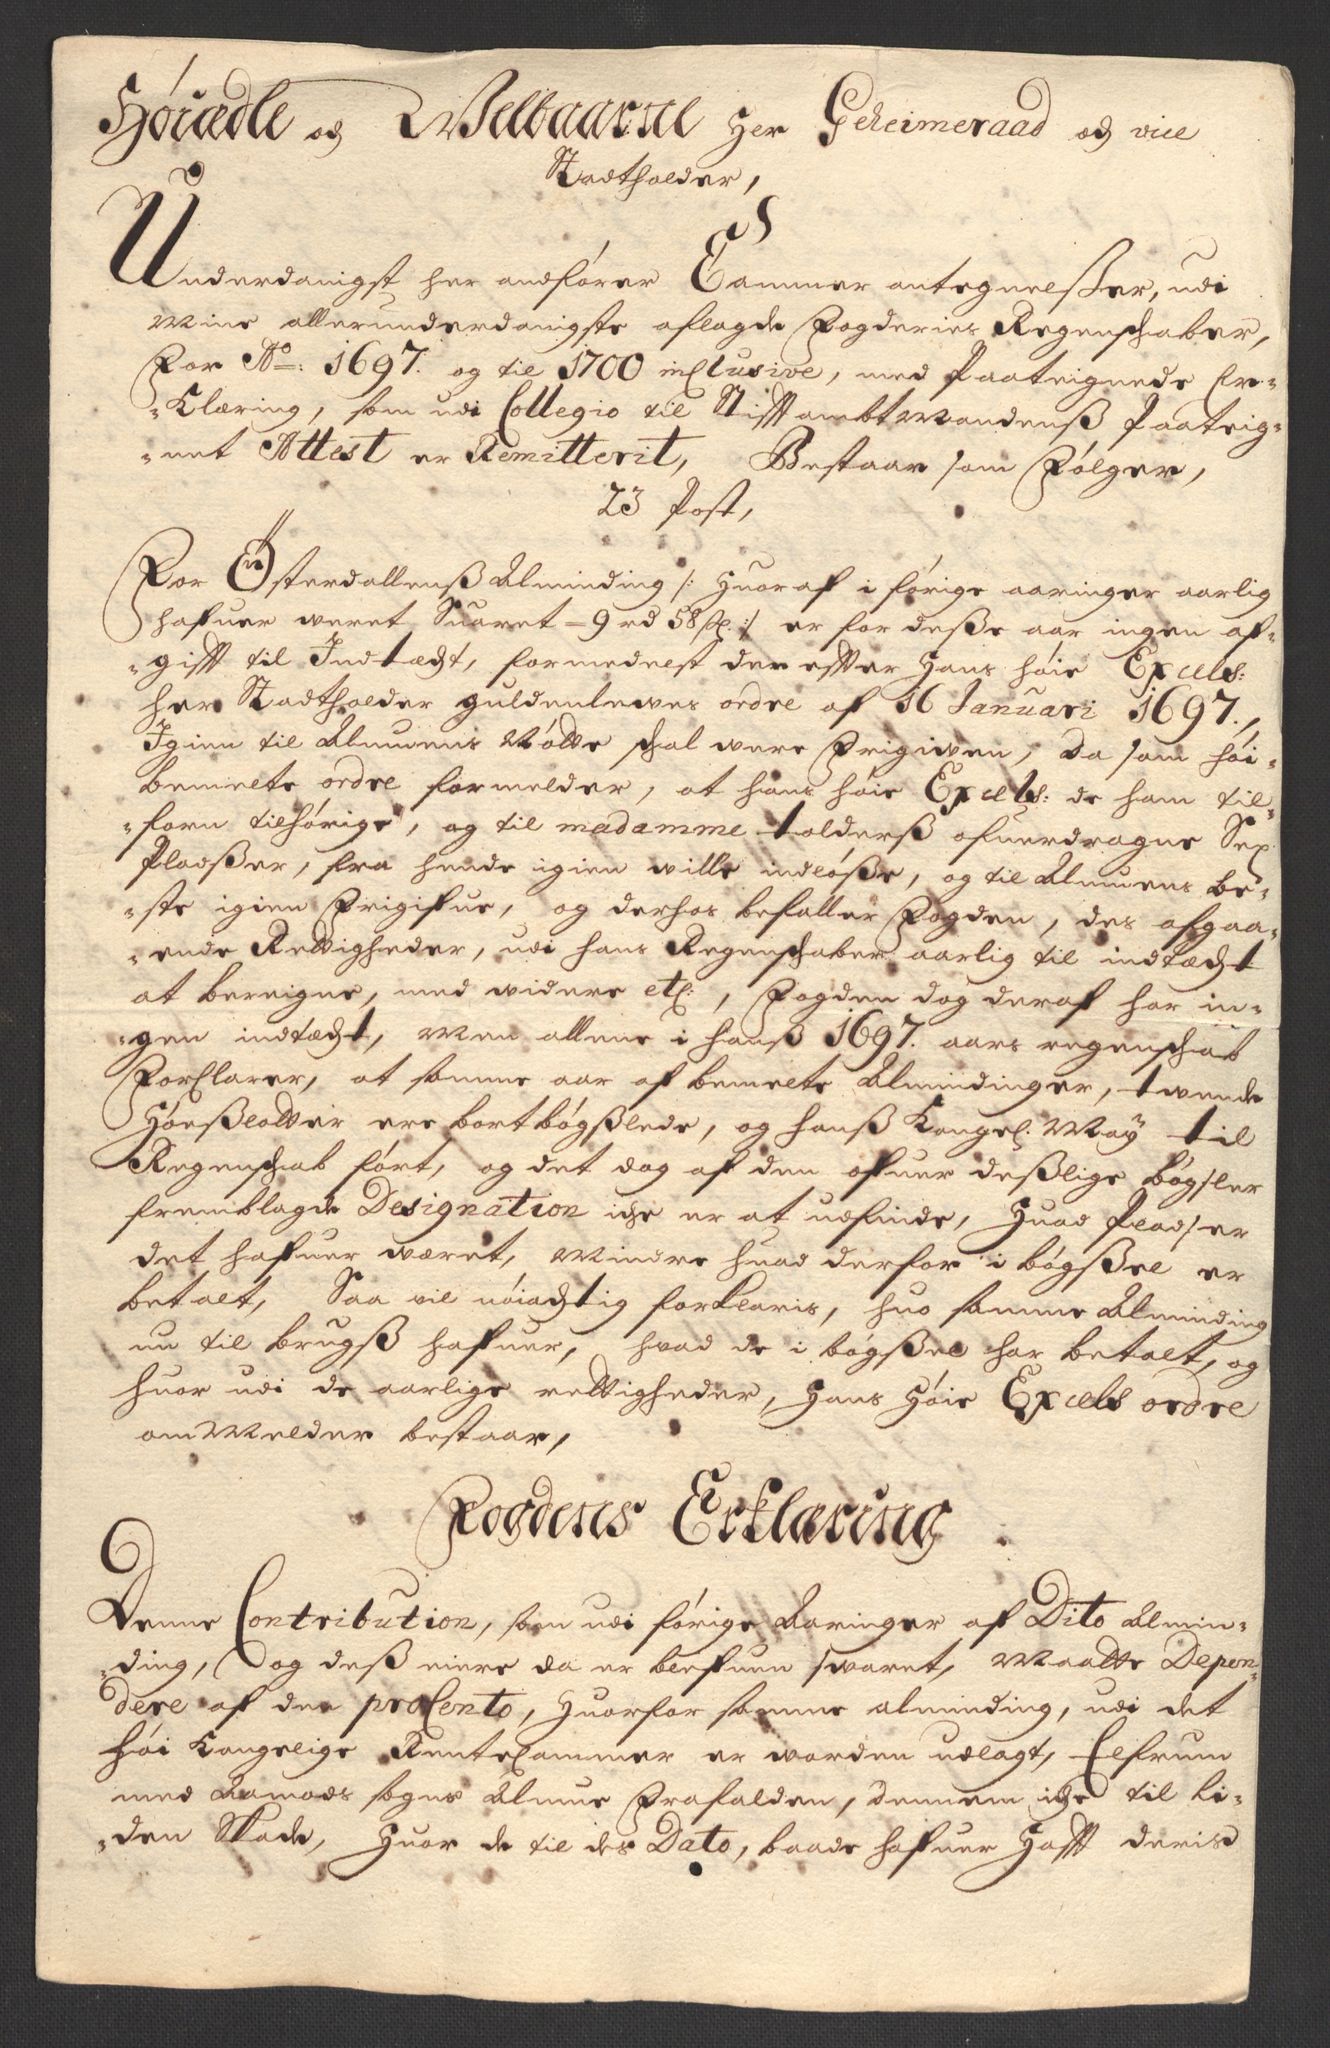 Høiædle og Welbaarne Her Geheimeraad og vice
Stadtholder,
Underdanigst her andfører Cammer antegnelsser, udi
mine allerunderdanigste aflagde Fogderies Regenschaber,
For Ao: 1697. og til 1700 inclusive, med Paateignede Er-
-Klæring, som udi Collegio til Stifftambtmandenß Paateig-
-net Attest er Remitterit, Bestaar som Følger,
23 Post,
For Østerdallenß Alminding /: Huoraf i førige aaringer aarlig
hafuer weret Suaret - 9 rd 58 sk. :/ er for desse aar ingen af-
-gifft til Indtæcht, formedelst der effter Hans høie Excells:
her Stadtholder guldenlewes ordre af 16 Januari 1697.,
Igien til Almuens Nøtte schal were Frigiwen, Da som høi-
bemelte ordre formelder, at hans høie Excells: de ham til-
-forn tilhørige, og til madamme tolderß ofuerdragne Sex
Pladsser, fra hende igien wille indløsse, og til Almuens be-
-ste igien Frigifue, og derhos befaller Fogden, des afgaa-
-ende Rettigheder, udi hans Regenschaber aarlig til indtæcht
at bereigne, med widere etc:, Fogden dog deraf har in-
-gen indtæcht, men allene i hanß 1697. aars regenschab
Forclarer, at samme aar af bemelte Almindinger, twende
Høeßlotter ere bortbøgßlede, og hanß Kongel. May til
Regenschab ført, og det dog af den ofuer deßlige bøgsler
fremblagde Designation iche er at udfinde, Huad Pladser
det hafuer wæret, mindre huad derfor i bøgßel er
betalt, Saa vil nøiachtig forklaris, huo samme Alminding
nu til brugß hafuer, hvad de i bøgßel har betalt, og
huor udi de aarlige rettigheder, Hans Høie Excells ordre
ommelder bestaar,
Fogdens Erklæring
Denne Contribution, som udi førige Aaringer af Dito Almin-
-ding, og deß eiere da er blefuen swaret, maatte Depen-
dere af den proCento, Huorfor samme alminding, udi det
høi Kongelige RenteCammer er worden udlagt, Elfrum
med Aamods sogns Almue Frafalden, dennem iche til li-
-den Skade, Huor de til des Dato, baade hafuer Hafft deris